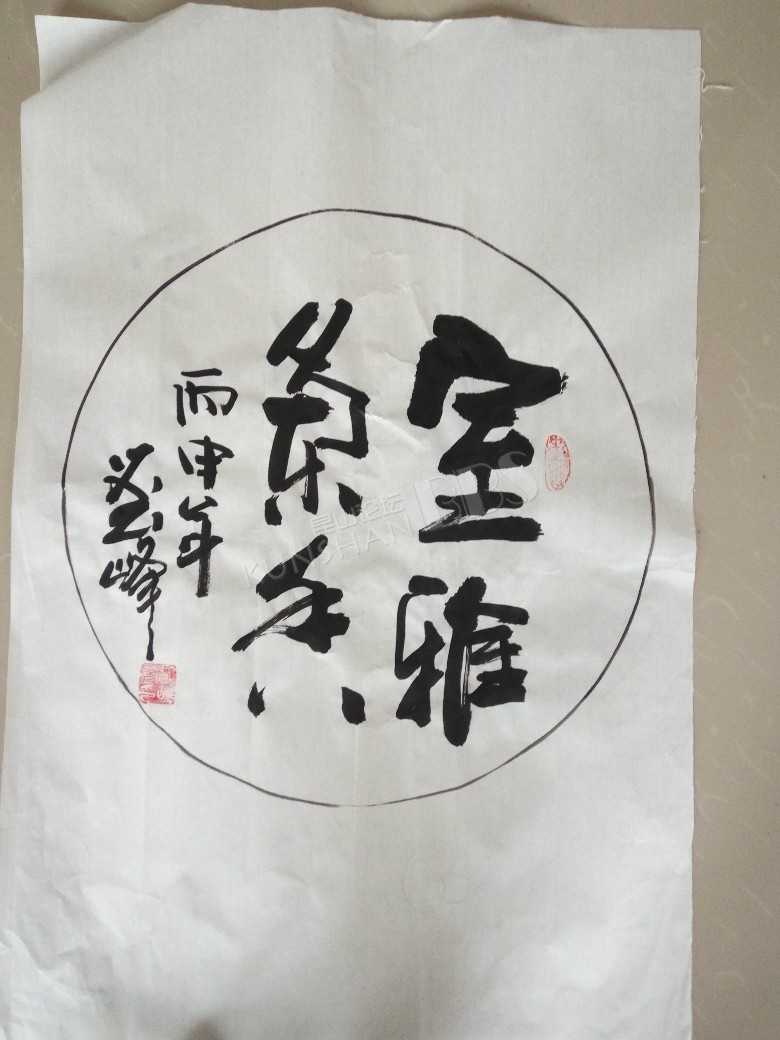 室雅
蘭香
丙申年
峰
昆山论坛
KUNSHAN BBS